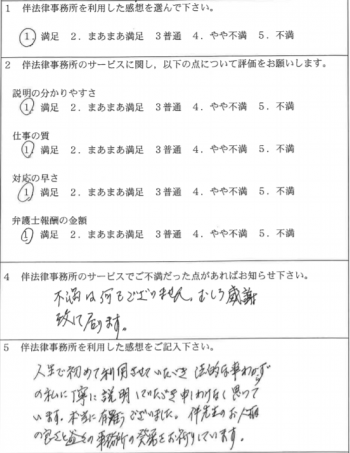 1 伴法律事務所を利用した感想を選んで下さい。
1.満足 2.まあまあ満足 3普通 4.やや不満 5.不満
2 伴法律事務所のサービスに関し、以下の点について評価をお願いします。
説明の分かりやすさ
1.満足 2.まあまあ満足 3普通 4.やや不満 5.不満
仕事の質
1.満足 2.まあまあ満足 3普通 4.やや不満 5.不満
対応の早さ
1.満足 2.まあまあ満足 3普通 4.やや不満 5.不満
弁護士報酬の金額
1.満足 2.まあまあ満足 3普通 4.やや不満 5.不満
4 伴法律事務所のサービスでご不満だった点があればお知らせ下さい。
不満は何もございません。むしろ感謝
致して居ります。
5 伴法律事務所を利用した感想をご記入下さい。
人生で初めて利用させていただき 法的な事わからず
の私に丁寧に説明していただき申しわけなく思って
います。本当に有難うございました。伴先生のお人柄
の良さと 事務所の発展をお祈りしています。